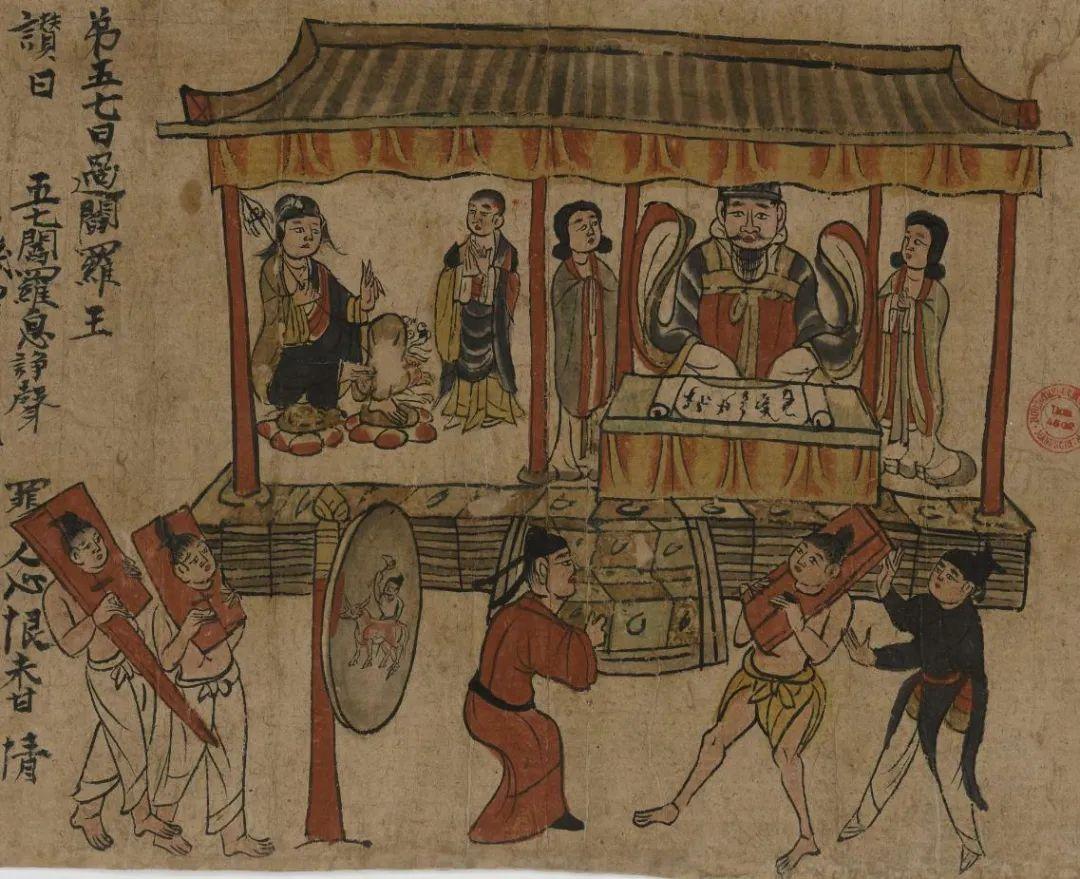 弟五七日過閻羅王
讃曰 五七閻羅息諍聲 罪人心恨未甘情